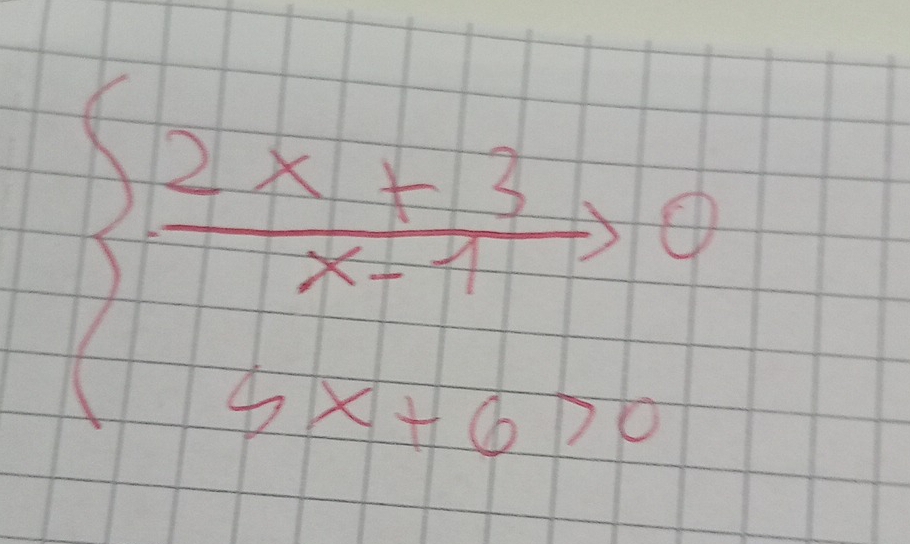 { 2x + 3 / x - 1 > 0
5x + 6 > 0